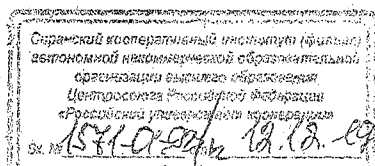 Саранский кооперативный институт (филиал)
автономной некоммерческой образовательной
организации высшего образования
Центросоюза Российской Федерации
«Российский университет кооперации»
Вх. № 12.12.19